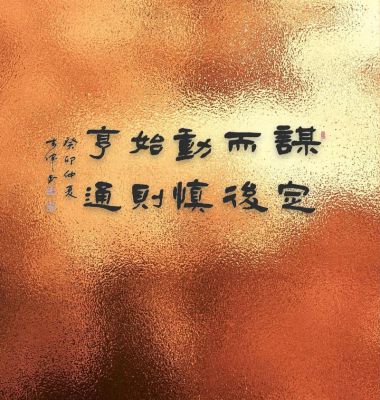 謀定
而後
動慎
始則
亨通
癸卯仲夏